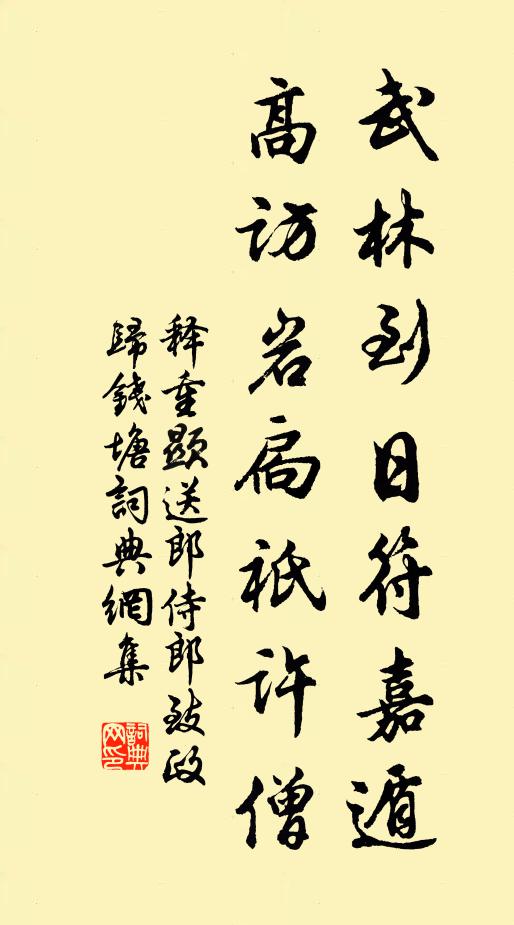 武林到日符嘉遁
高访岩扃祇许僧
释重显送郎侍郎致政
歸錢塘詞典網集
詞典网印